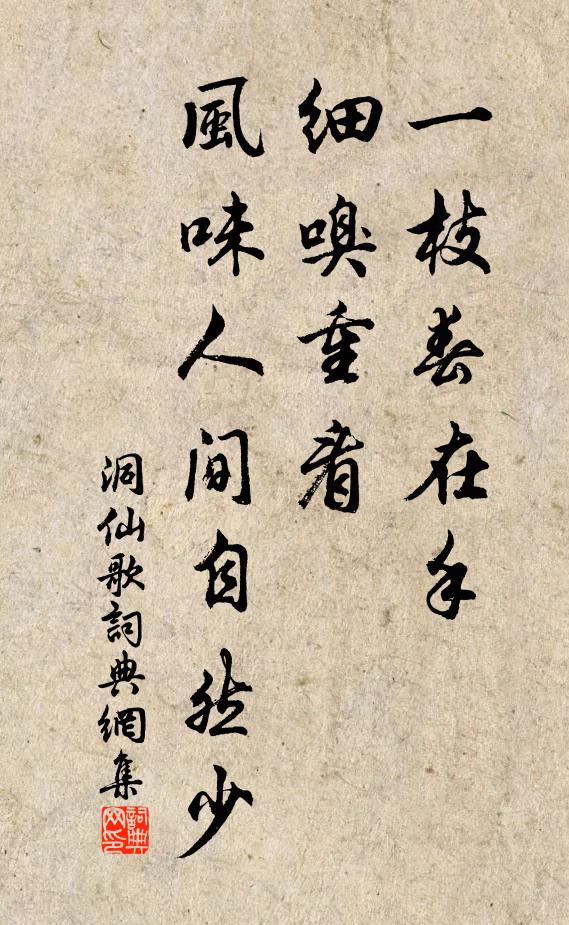 一枝春在手
細嗅重看
風味人間自然少
洞仙歌詞典網集
詞典
网印